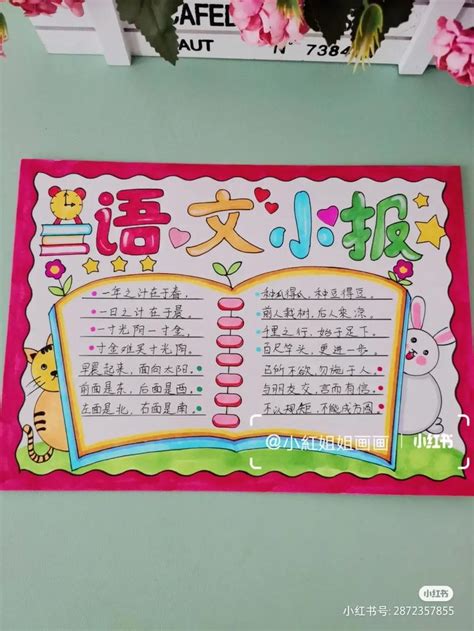 CAFE
AUT N° 7384
语文小报
一年之计在于春，
一日之计在于晨。
一寸光阴一寸金，
寸金难买寸光阴。
早晨起来，面向太阳。
前面是东，后面是西。
左面是北，右面是南。
种瓜得瓜，种豆得豆。
前人栽树，后人来凉。
千里之行，始于足下。
百尺竿头，更进一步。
己所不欲，勿施于人。
与朋友交，言而有信。
不以规矩，不能成方圆
@小紅姐姐画画 小红书
小红书
小红书号: 2872357855